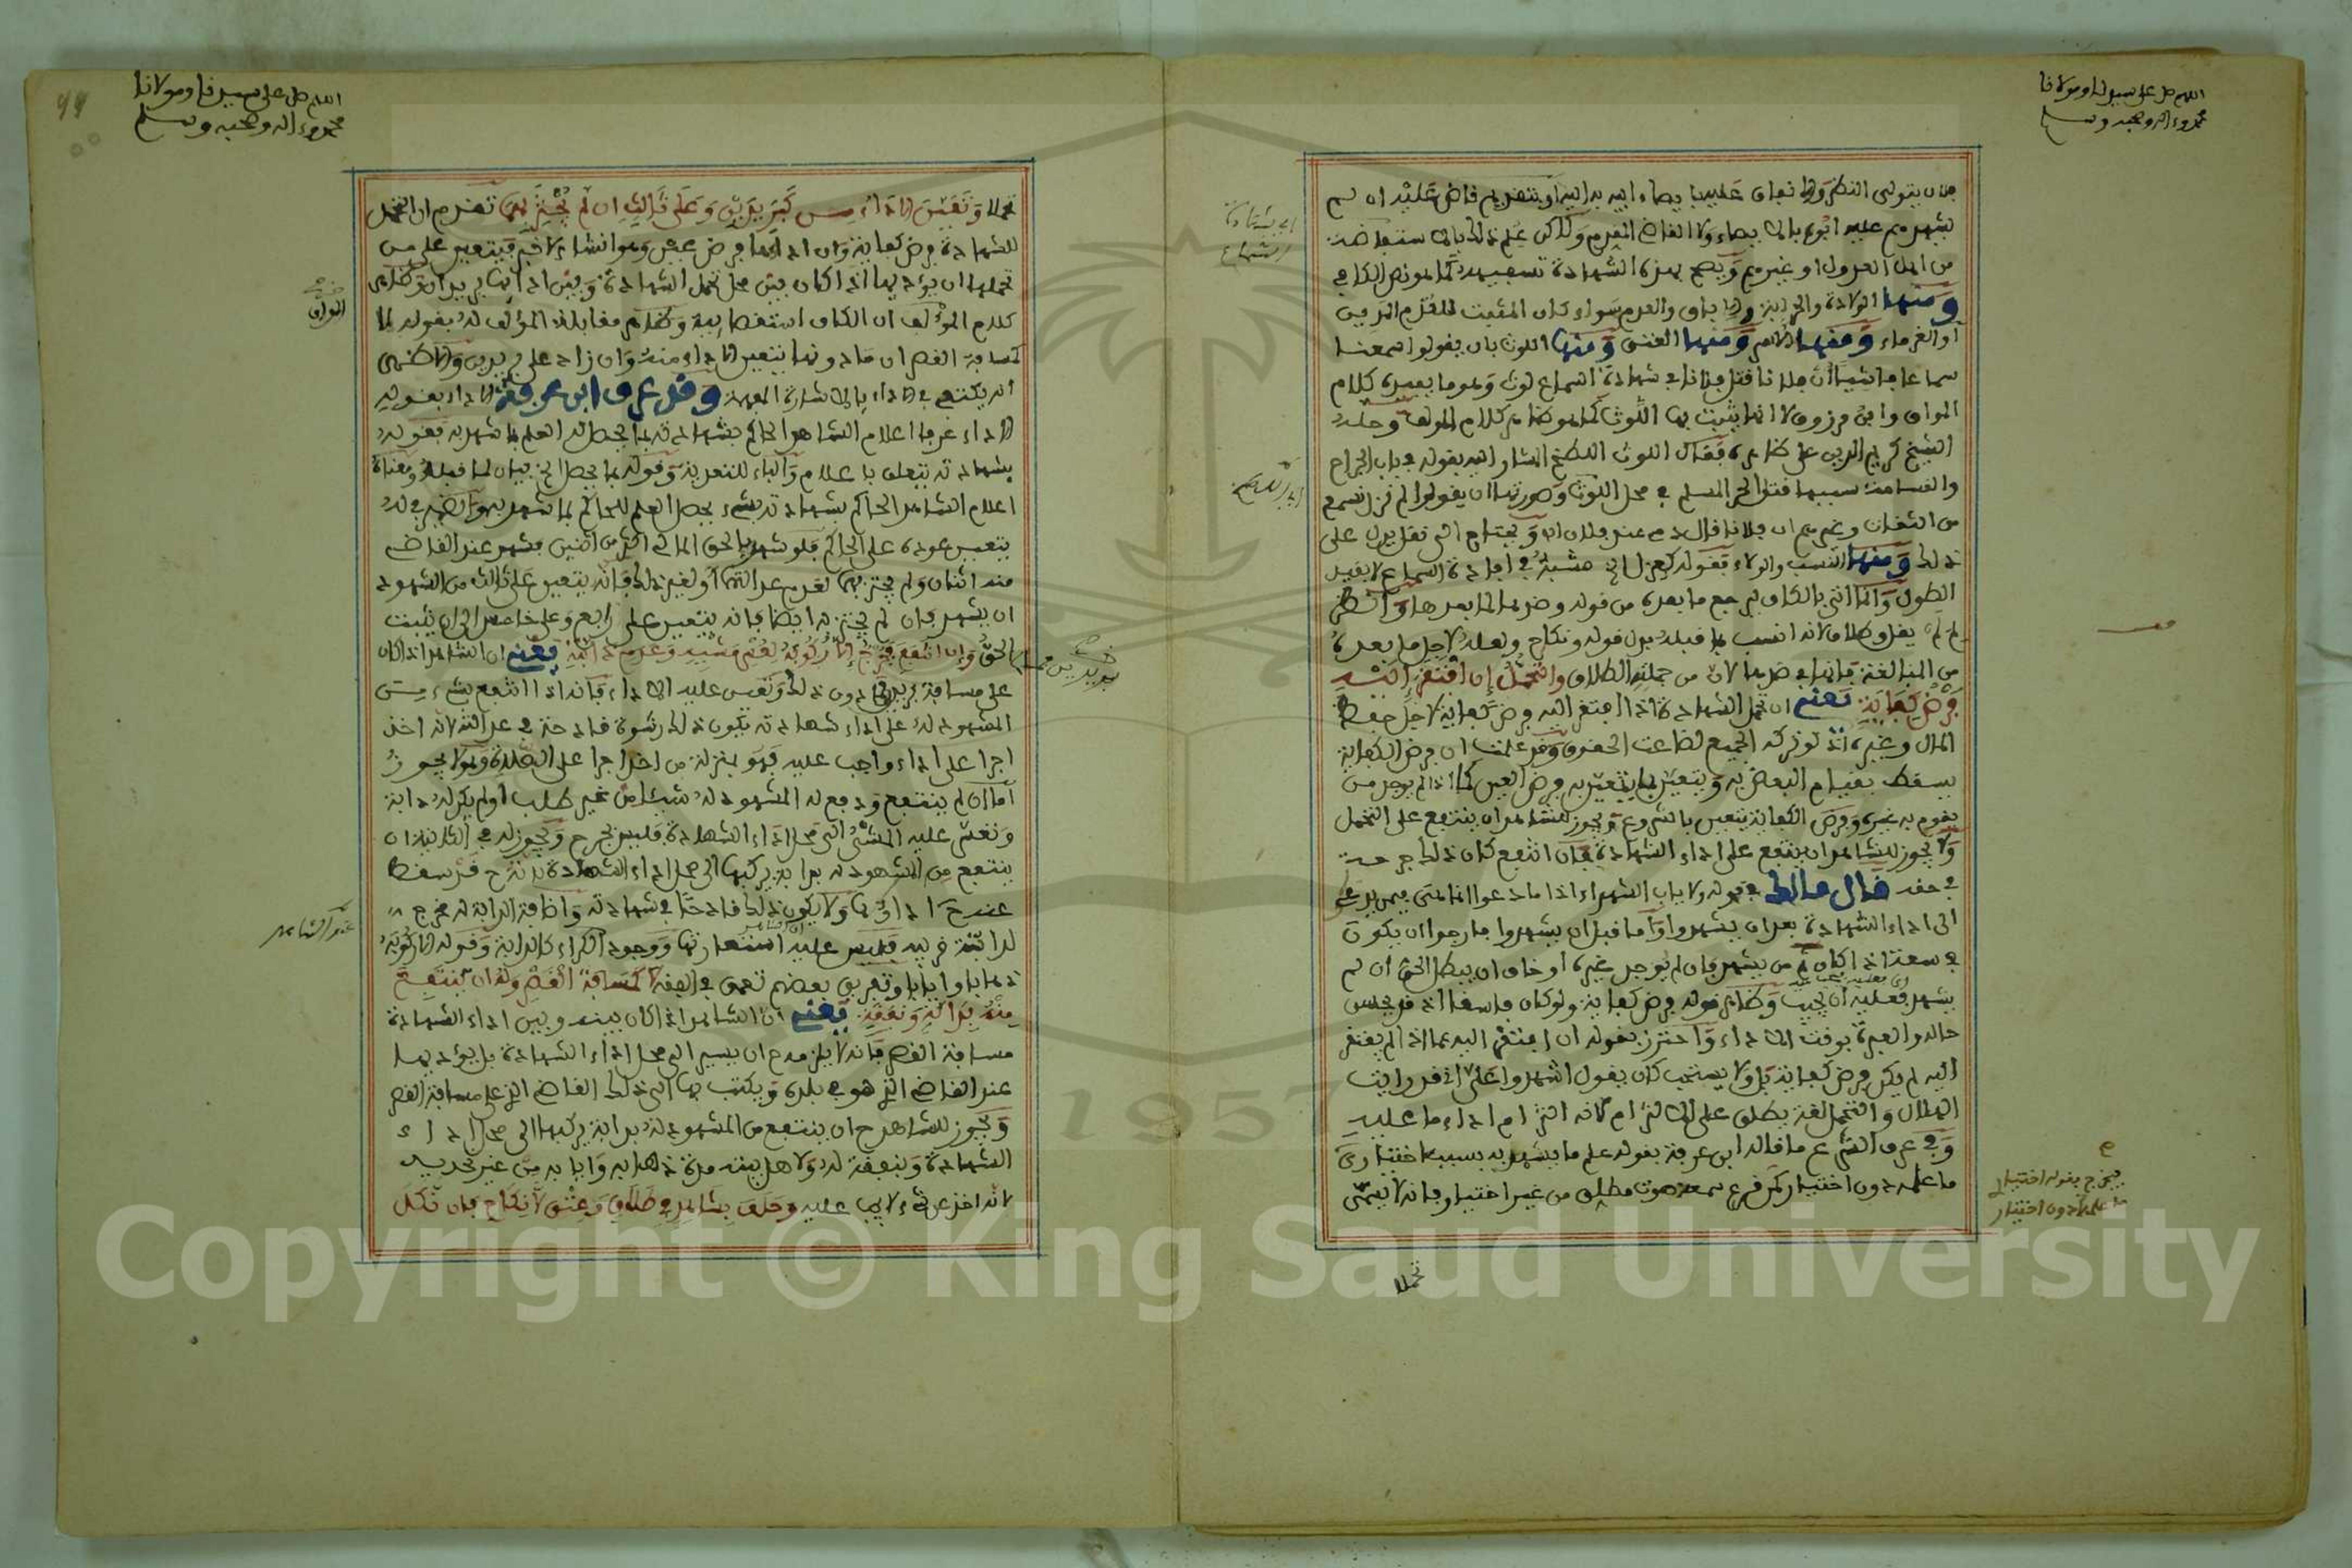 اللهم صل على سيدنا ومولانا
محمد وءاله وصحبه وسلم
فلان يتولى النظر والانفاق عليه بايصاء ابيه به اليه او بتقديم قاض عليه ان لم
يشهدهم عليه ابوه بالايصاء ولا القاضي بالتقديم ولاكن علم ذلك بالاستفاضة
من اهل العدول او غيرهم ويصح بهذه الشهادة تسفيهه كما هو نص الكافي
ومنها الولادة والحرابة والاباق والعدم سواء كان المثبت للعدم المدين
او الغرماء ومنها الاسر ومنها العتق ومنها اللوث بان يقولوا سمعنا
سماعا فاشيا ان فلانا قتل فلانا فشهادة السماع لوث وهو ما يفيده كلام
المواق وابن مرزوق لا انما يثبت بها اللوث كما هو ظاهر كلام المؤلف وحمله
الشيخ كريم الدين على ظاهره فقال اللوث اللطخ المشار اليه بقوله في باب الجراح
والقسامة سببها قتل الحر المسلم في محل اللوث وصورتها ان يقولوا لم نزل نسمع
من الثقات وغيرهم ان فلانا قال دمي عند فلان الخ ويحتاج الى نقل يدل على
ذلك ومنها النسب والولاء فقوله كعزل الخ مشبه في افادة السماع لا بقيد
الطول وانما اتى بالكاف ليرجع ما بعده من قوله وضرر لما بعدها وانظر
لم لم يقل وطلاق لانه انسب بما قبله بدل قوله ونكاح ولعله لاجل ما بعده
من المبالغة فانها في ضررها لان من جملته الطلاق والتحمل ان افتقر اليه
فرض كفاية يعني ان تحمل الشهادة اذا افتقر اليه فرض كفاية لاجل حفظ
المال وغيره اذ لو تركه الجميع لضاعت الحقوق وقد علمت ان فرض الكفاية
يسقط بقيام البعض به ويتعين بما يتعين به فرض العين كما اذا لم يوجد من
يقوم به غيره وفرض الكفاية يتعين بالشروع ويجوز للشاهد ان ينتفع على التحمل
ولا يجوز للشاهد ان ينتفع على اداء الشهادة فان انتفع كان ذلك جرحة
في حقه قال مالك في قوله ولا ياب الشهداء اذا ما دعوا انما المعنى فيمن يدعى
الى اداء الشهادة بعد ان يشهدوا واما قبل ان يشهدوا فارجوا ان يكون
في سعة اذا كان ثم من يشهد فان لم يوجد غيره او خاف ان يبطل الحق ان لم
يشهد فعليه ان يجيب وظاهر قوله فرض كفاية ولو كان فاسقا اذ قد يحسن
حاله والعبرة بوقت الاداء واحترز بقوله ان افتقر اليه عما اذا لم يفتقر
اليه لم يكن فرض كفاية بل ولا يستحب كان يقول اشهدوا علي اني قد رايت
الهلال والتحمل لغة يطلق على الالتزام لانه التزام اداء ما عليه
وفي عرف الشرع ما قاله ابن عرفة بقوله علم ما يشهد به بسبب اختياري
ما علمه دون اختيار كمن قرع سمعه صوت مطلق من غير اختيار فانه لا يسمى
تحملا
فيخرج بقوله اختيار
ما علمه دون اختيار
اللهم صل على سيدنا ومولانا
محمد وءاله وصحبه وسلم
تحملا وتعين الاداء من كبريدين وعلى ثالث ان لم يجتز بهما تقدم ان التحمل
للشهادة فرض كفاية وان اداءها فرض عين وهو انشاء لا خبر فيتعين على من
تحملها ان يؤديها اذا كان بين محل تحمل الشهادة وبين ادائها بريدان وظاهر
كلام المؤلف ان الكاف استقصائية وظاهر مقابلة المؤلف له بقوله لا
كمسافة القصر ان ما دونها يتعين الاداء منه وان زاد على بريدين والاظهر
انه يكتفى في الاداء بالاشارة المفهمة وقد عرف ابن عرفة الاداء بقوله
الاداء عرفا اعلام الشاهد الحاكم بشهادته بما يحصل له العلم بما شهد به فقوله
بشهادته يتعلق باعلام والباء للتعدية وقوله بما يحصل الخ بيان لما قبله ومعناه
اعلام الشاهد الحاكم بشهادته بشيء يحصل العلم للحاكم بما شهد به والضمير في له
يتعين عوده على الحاكم فلو شهد بالحق المالي اكثر من اثنين فشهد عند القاضي
منه اثنان ولم يجتز بهما لعدم عدالتهما او لغير ذلك فانه يتعين على ثالث من الشهود
ان يشهد فان لم يجتز به ايضا فانه يتعين على رابع وعلى خامس الى ان يثبت
الحق وان انتفع فجرح الا ركوبه لعسر مشيه وعدم دابته يعني ان الشاهد اذا كان
على مسافة بريدين فما دون ذلك وتعين عليه الاداء فانه اذا انتفع بشيء من
المشهود له على اداء شهادته يكون ذلك رشوة قادحة في عدالته لانه اخذ
اجرا على اداء واجب عليه فهو بمنزلة من اخذ اجرا على الصلاة وهو لا يجوز
اما ان لم ينتفع ودفع له المشهود له شيئا من غير طلب او لم يكن له دابة
وتعسر عليه المشي الى محل اداء الشهادة فليس بجرح ويجوز له في الثانية ان
ينتفع من المشهود له بدابة يركبها الى محل اداء الشهادة لانه ح قد سقط
عنه ح اداؤها ولا يكون ذلك قادحا في شهادته واضافة الدابة له مخرج
لدابة قريبه فليس عليه استعارتها ووجود الكراء كالدابة وقوله الا ركوبه
ذهابا وايابا وتفريق بعضهم تعمق في الفقه لا كمسافة القصر وله ان ينتفع
منه بدابة ونفقة يعني ان الشاهد اذا كان بينه وبين اداء الشهادة
مسافة القصر فانه لا يلزمه ح ان يسير الى محل اداء الشهادة بل يؤديها
عند القاضي الذي هو في بلده ويكتب بها الى ذلك القاضي الذي على مسافة القصر
ويجوز للشاهد ح ان ينتفع من المشهود له بدابة يركبها الى محل اداء
الشهادة وبنفقة له ولاهل بيته مدة ذهابه وايابه من غير تحديد
لانه اخذ عن شيء لا يجب عليه وحلف بشاهد في طلاق وعتق لا نكاح فان نكل
Copyright © King Saud University
1957